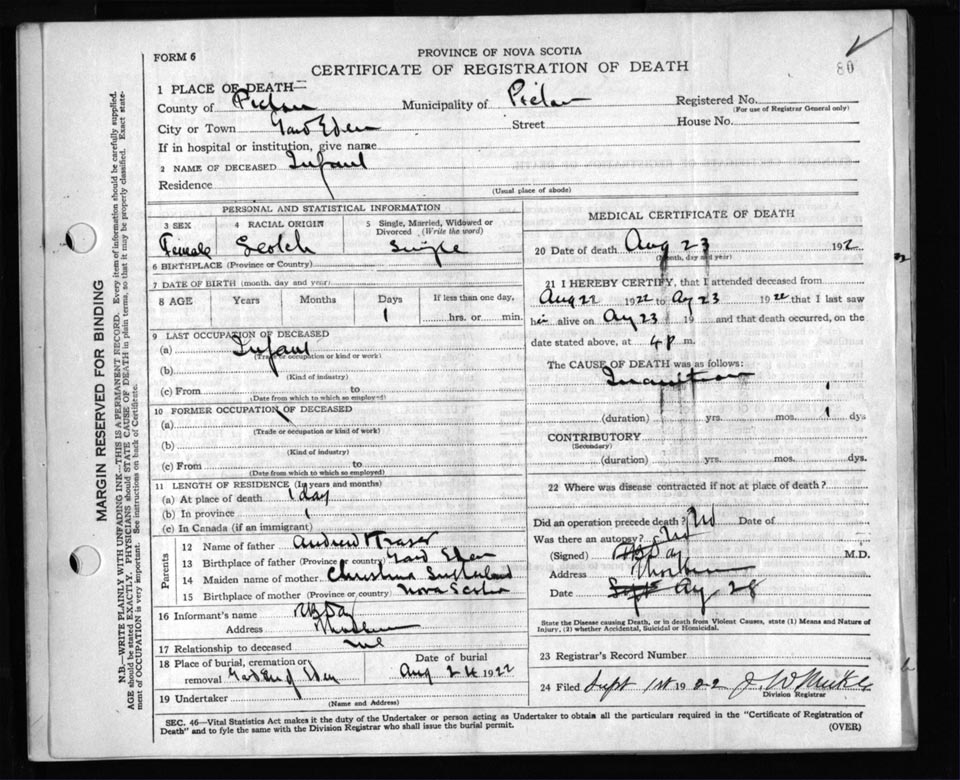 80
FORM 6
PROVINCE OF NOVA SCOTIA
CERTIFICATE OF REGISTRATION OF DEATH
1 PLACE OF DEATH—
County of Pictou Municipality of Pictou Registered No.
(For use of Registrar General only)
City or Town Gard Eden Street House No.
If in hospital or institution, give name
2 NAME OF DECEASED Infant
Residence
(Usual place of abode)
PERSONAL AND STATISTICAL INFORMATION
3 SEX 4 RACIAL ORIGIN 5 Single, Married, Widowed or Divorced (Write the word)
Female Scotch Single
6 BIRTHPLACE (Province or Country)
7 DATE OF BIRTH (month, day and year)
8 AGE Years Months Days If less than one day,
1 hrs. or min.
9 LAST OCCUPATION OF DECEASED
(a) Infant
(Trade or occupation or kind or work)
(b)
(Kind of industry)
(c) From to
(Date from which to which so employed)
10 FORMER OCCUPATION OF DECEASED
(a)
(Trade or occupation or kind of work)
(b)
(Kind of industry)
(c) From to
(Date from which to which so employed)
11 LENGTH OF RESIDENCE (In years and months)
(a) At place of death 1 day
(b) In province 1
(c) In Canada (if an immigrant)
Parents
12 Name of father Andrew Fraser
13 Birthplace of father (Province or country) Gard Eden
14 Maiden name of mother Christina Sutherland
15 Birthplace of mother (Province or country) Nova Scotia
16 Informant's name
Address Thorburn
17 Relationship to deceased
18 Place of burial, cremation or
removal Gard of Eden
Date of burial
Aug 24 1922
19 Undertaker
(Name and Address)
MEDICAL CERTIFICATE OF DEATH
20 Date of death Aug 23 1922
(Month, day and year)
21 I HEREBY CERTIFY, that I attended deceased from
Aug 22 1922 to Aug 23 1922 that I last saw
her alive on Aug 23 19 and that death occurred, on the
date stated above, at 4 P m.
The CAUSE OF DEATH was as follows:
Inanition
1
(duration) yrs. mos. 1 dys
CONTRIBUTORY
(Secondary)
(duration) yrs. mos. dys.
22 Where was disease contracted if not at place of death?
Did an operation precede death? No Date of
Was there an autopsy? No
(Signed) M.D.
Address Thorburn
Date Sept Aug 28
State the Disease causing Death, or in death from Violent Causes, state (1) Means and Nature of
Injury, (2) whether Accidental, Suicidal or Homicidal.
23 Registrar's Record Number
24 Filed Sept 1st 1922
Division Registrar
SEC. 46—Vital Statistics Act makes it the duty of the Undertaker or person acting as Undertaker to obtain all the particulars required in the "Certificate of Registration of
Death" and to fyle the same with the Division Registrar who shall issue the burial permit.
(OVER)
MARGIN RESERVED FOR BINDING
N.B.—WRITE PLAINLY WITH UNFADING INK—THIS IS A PERMANENT RECORD. Every item of information should be carefully supplied.
AGE should be stated EXACTLY. PHYSICIANS should STATE CAUSE OF DEATH in plain terms, so that it may be properly classified. Exact state-
ment of OCCUPATION is very important. See instructions on back of Certificate.